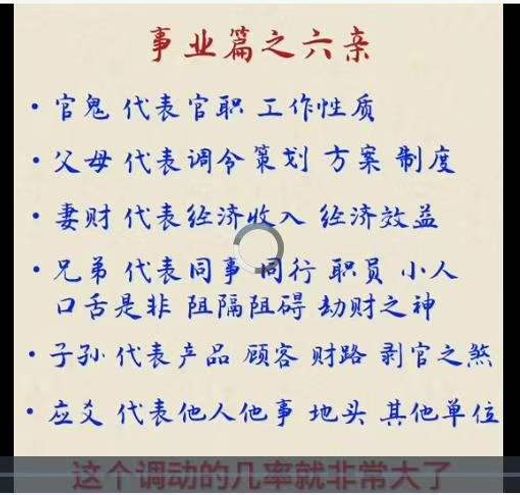 事业篇之六亲
• 官鬼 代表官职 工作性质
• 父母 代表调令策划 方案 制度
• 妻财 代表经济收入 经济效益
• 兄弟 代表同事 同行 职员 小人
口舌是非 阻隔阻碍 劫财之神
• 子孙 代表产品 顾客 财路 剥官之煞
• 应爻 代表他人他事 地头 其他单位
这个调动的几率就非常大了